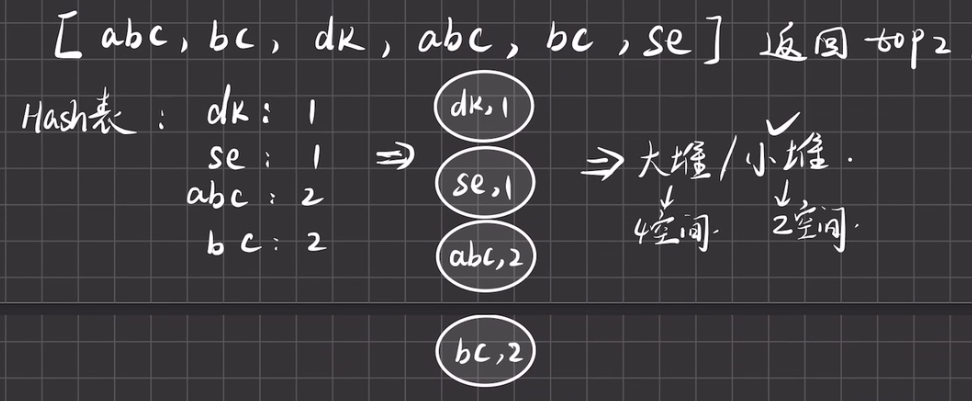 [ abc, bc, dk, abc, bc, se ] 返回 top2
Hash表: dk: 1
se: 1
abc: 2
bc: 2
⇒
dk,1
se,1
abc,2
bc,2
⇒ 大堆/小堆.
✓
↓ ↓
4空间. 2空间.